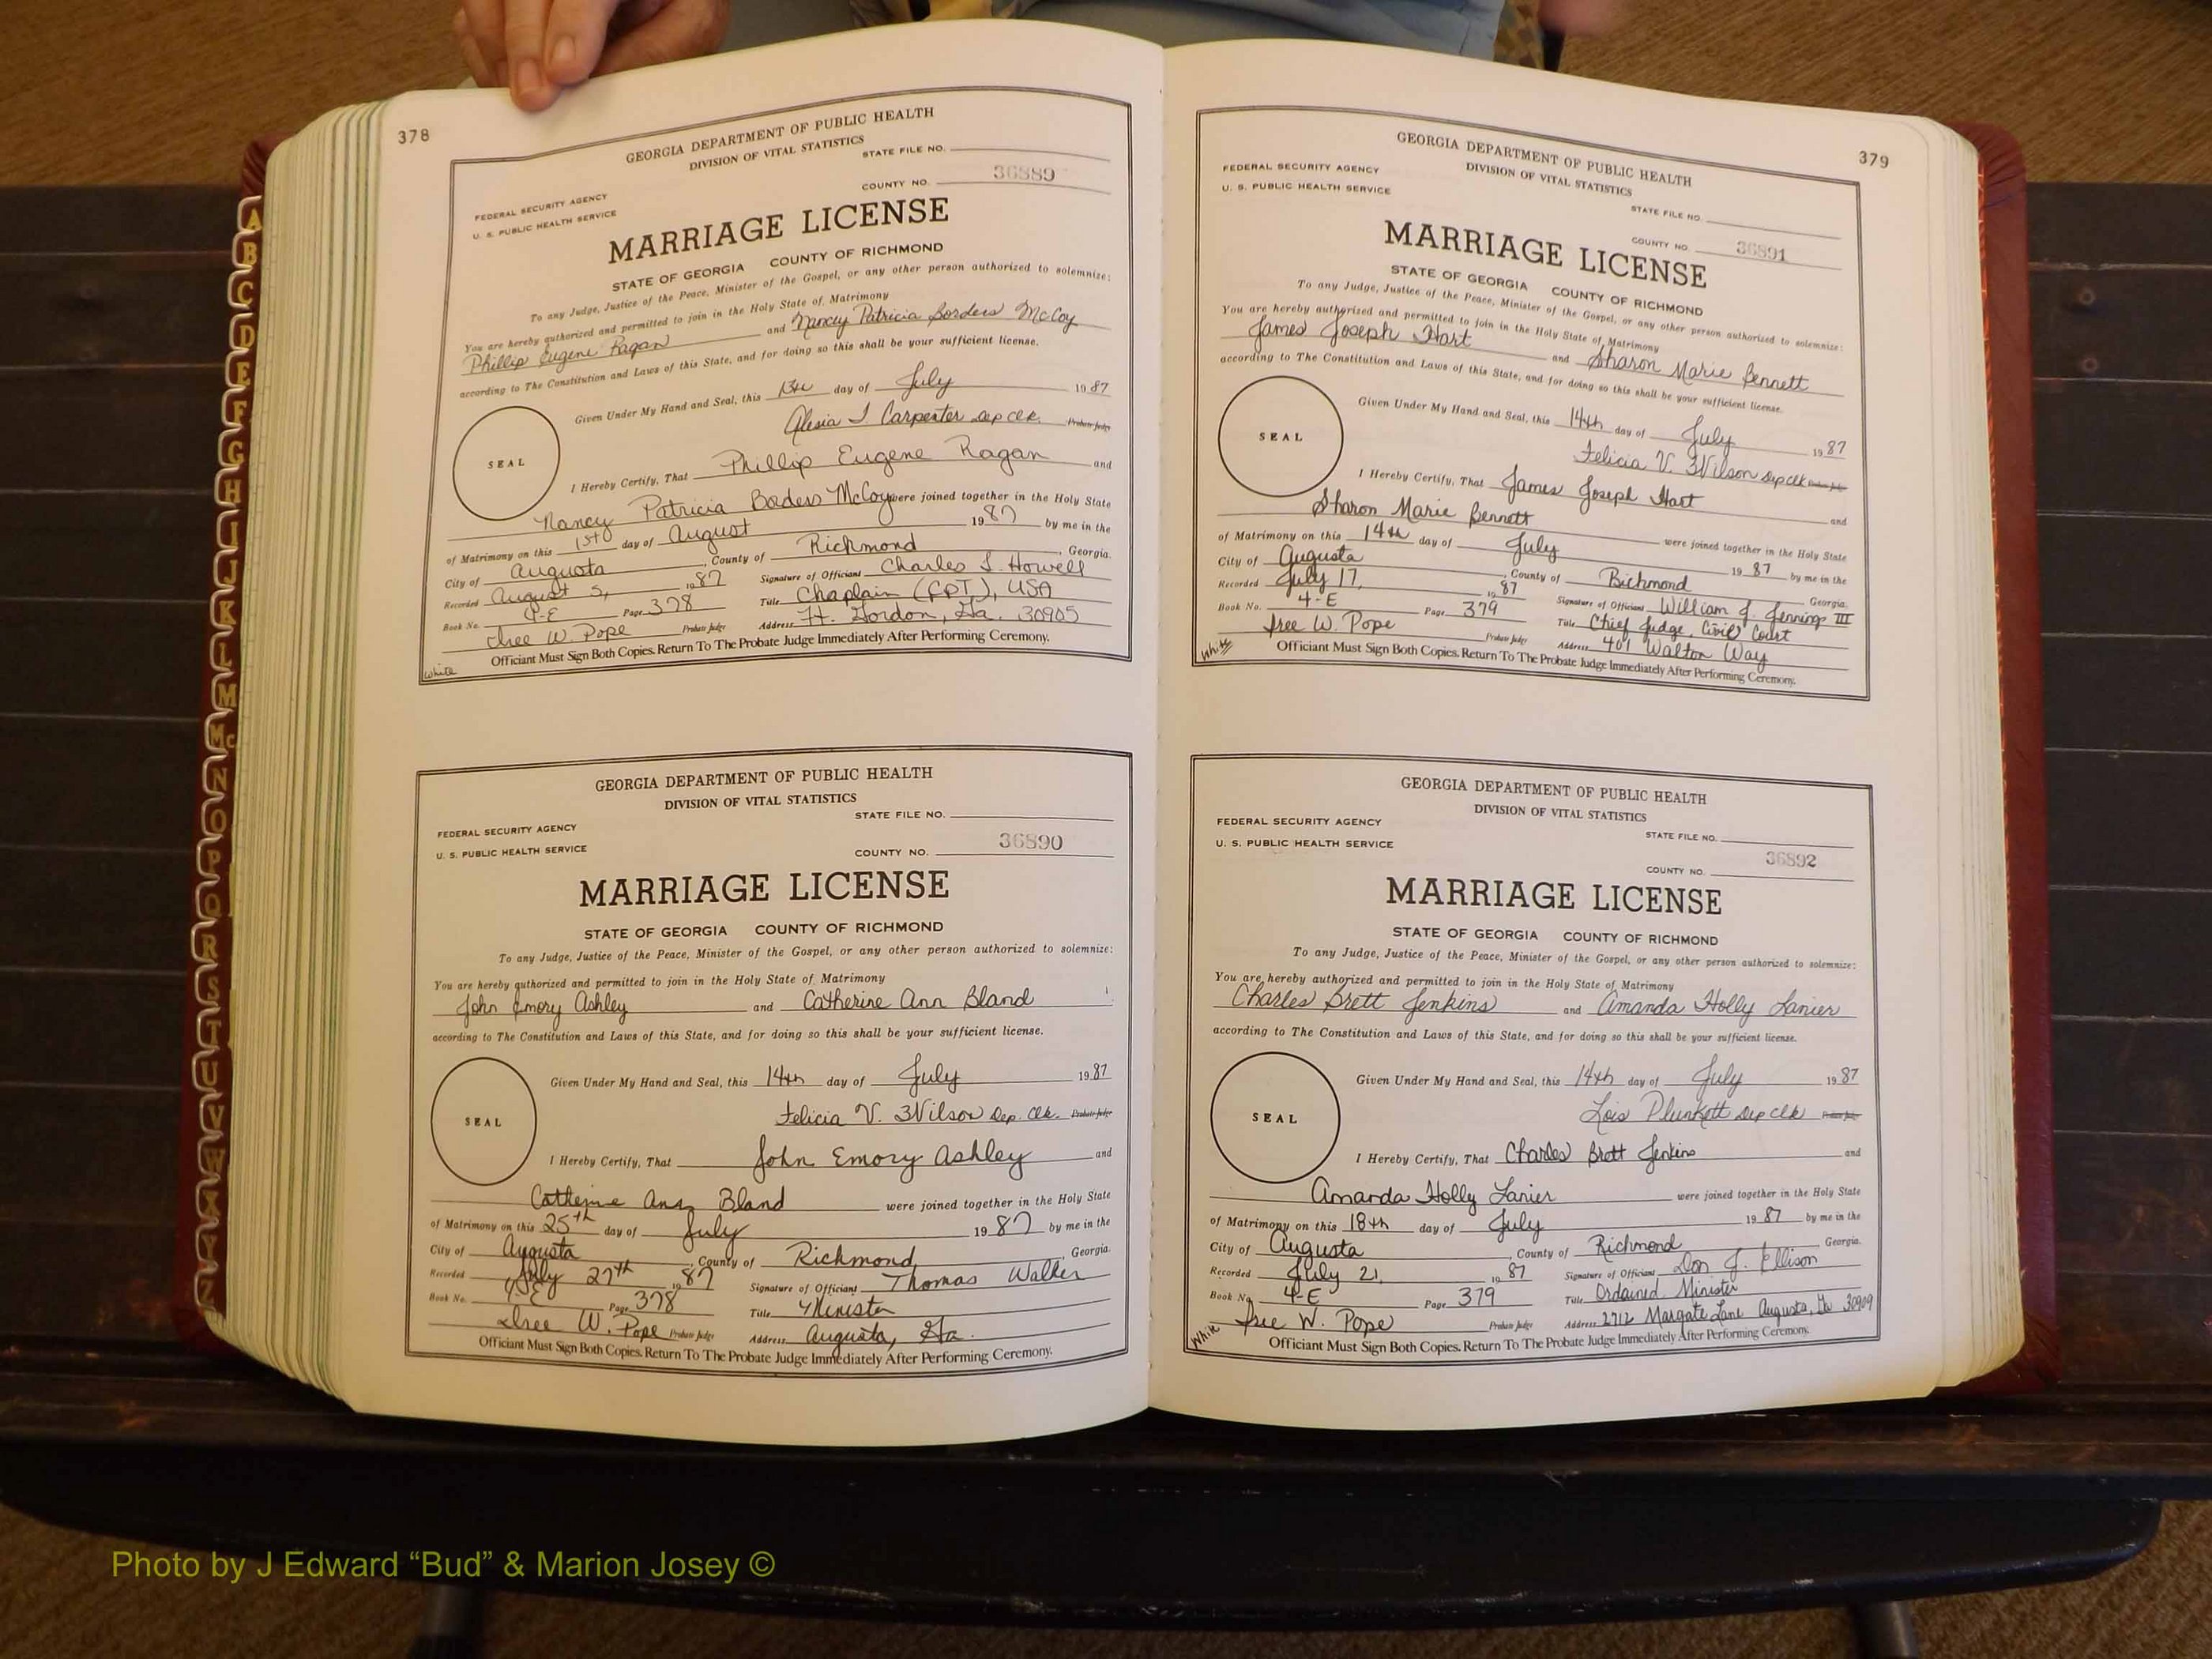 378
GEORGIA DEPARTMENT OF PUBLIC HEALTH
DIVISION OF VITAL STATISTICS
STATE FILE NO.
36889
COUNTY NO.
FEDERAL SECURITY AGENCY
U. S. PUBLIC HEALTH SERVICE
MARRIAGE LICENSE
STATE OF GEORGIA COUNTY OF RICHMOND
To any Judge, Justice of the Peace, Minister of the Gospel, or any other person authorized to solemnize:
You are hereby authorized and permitted to join in the Holy State of Matrimony
Phillip Eugene Ragan and Nancy Patricia Borders McCoy
according to The Constitution and Laws of this State, and for doing so this shall be your sufficient license.
Given Under My Hand and Seal, this 13th day of July 19 87
Alesia J Carpenter Dep Clk. Probate Judge
SEAL
I Hereby Certify, That Phillip Eugene Ragan and
Nancy Patricia Borders McCoy were joined together in the Holy State
of Matrimony on this 1st day of August 19 87 by me in the
City of Augusta, County of Richmond, Georgia.
Recorded August 5, 19 87 Signature of Officiant Charles S. Howell
Book No. 4-E Page 378 Title Chaplain (CPT), USA
Isee W. Pope Probate Judge Address Ft. Gordon, Ga. 30905
Officiant Must Sign Both Copies. Return To The Probate Judge Immediately After Performing Ceremony.
White
GEORGIA DEPARTMENT OF PUBLIC HEALTH
DIVISION OF VITAL STATISTICS
STATE FILE NO.
FEDERAL SECURITY AGENCY
36890
U. S. PUBLIC HEALTH SERVICE
COUNTY NO.
MARRIAGE LICENSE
STATE OF GEORGIA COUNTY OF RICHMOND
To any Judge, Justice of the Peace, Minister of the Gospel, or any other person authorized to solemnize:
You are hereby authorized and permitted to join in the Holy State of Matrimony
John Emory Ashley and Catherine Ann Bland
according to The Constitution and Laws of this State, and for doing so this shall be your sufficient license.
Given Under My Hand and Seal, this 14th day of July 19 87
Felicia V. Wilson Dep. Clk. Probate Judge
SEAL
I Hereby Certify, That John Emory Ashley and
Catherine Ann Bland were joined together in the Holy State
of Matrimony on this 25th day of July 19 87 by me in the
City of Augusta, County of Richmond, Georgia.
Recorded July 27th 19 87 Signature of Officiant Thomas Walker
Book No. 4-E Page 378 Title Minister
Isee W. Pope Probate Judge Address Augusta, Ga.
Officiant Must Sign Both Copies. Return To The Probate Judge Immediately After Performing Ceremony.
379
GEORGIA DEPARTMENT OF PUBLIC HEALTH
DIVISION OF VITAL STATISTICS
FEDERAL SECURITY AGENCY
U. S. PUBLIC HEALTH SERVICE
STATE FILE NO.
COUNTY NO. 36891
MARRIAGE LICENSE
STATE OF GEORGIA COUNTY OF RICHMOND
To any Judge, Justice of the Peace, Minister of the Gospel, or any other person authorized to solemnize:
You are hereby authorized and permitted to join in the Holy State of Matrimony
James Joseph Hart and Sharon Marie Bennett
according to The Constitution and Laws of this State, and for doing so this shall be your sufficient license.
Given Under My Hand and Seal, this 14th day of July 19 87
Felicia V. Wilson Dep Clk Probate Judge
SEAL
I Hereby Certify, That James Joseph Hart and
Sharon Marie Bennett were joined together in the Holy State
of Matrimony on this 14th day of July 19 87 by me in the
City of Augusta, County of Richmond Georgia.
Recorded July 17, 19 87 Signature of Officiant William J. Jennings III
Book No. 4-E Page 379 Title Chief Judge, Civil Court
Isee W. Pope Probate Judge Address 401 Walton Way
Officiant Must Sign Both Copies. Return To The Probate Judge Immediately After Performing Ceremony.
White
GEORGIA DEPARTMENT OF PUBLIC HEALTH
DIVISION OF VITAL STATISTICS
FEDERAL SECURITY AGENCY
STATE FILE NO.
U. S. PUBLIC HEALTH SERVICE
36892
COUNTY NO.
MARRIAGE LICENSE
STATE OF GEORGIA COUNTY OF RICHMOND
To any Judge, Justice of the Peace, Minister of the Gospel, or any other person authorized to solemnize:
You are hereby authorized and permitted to join in the Holy State of Matrimony
Charles Brett Jenkins and Amanda Holly Lanier
according to The Constitution and Laws of this State, and for doing so this shall be your sufficient license.
Given Under My Hand and Seal, this 14th day of July 19 87
Lois Plunkett Dep Clk Probate Judge
SEAL
I Hereby Certify, That Charles Brett Jenkins and
Amanda Holly Lanier were joined together in the Holy State
of Matrimony on this 18th day of July 19 87 by me in the
City of Augusta, County of Richmond Georgia.
Recorded July 21, 19 87 Signature of Officiant Don J. Ellison
Book No. 4-E Page 379 Title Ordained Minister
Isee W. Pope Probate Judge Address 2712 Margate Lane Augusta, Ga 30909
Officiant Must Sign Both Copies. Return To The Probate Judge Immediately After Performing Ceremony.
White
A
B
C
D
E
F
G
H
I
J
K
L
M
Mc
N
O
P
Q
R
S
T
U
V
W
X
Y
Z
Photo by J Edward “Bud” & Marion Josey ©